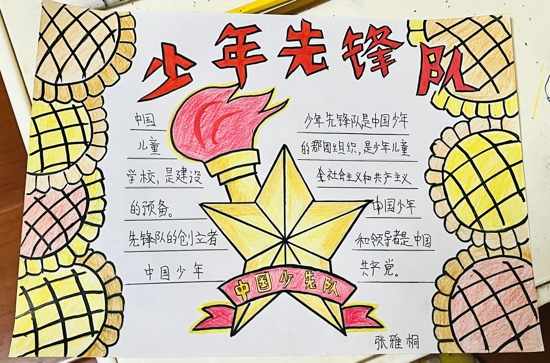 少年先锋队
中国
儿童
学校,是建设
的预备。
先锋队的创立者
中国少年
少年先锋队是中国少年
的群团组织,是少年儿童
会社会主义和共产主义
中国少年
和领导者是中国
共产党。
中国少先队
张雅桐